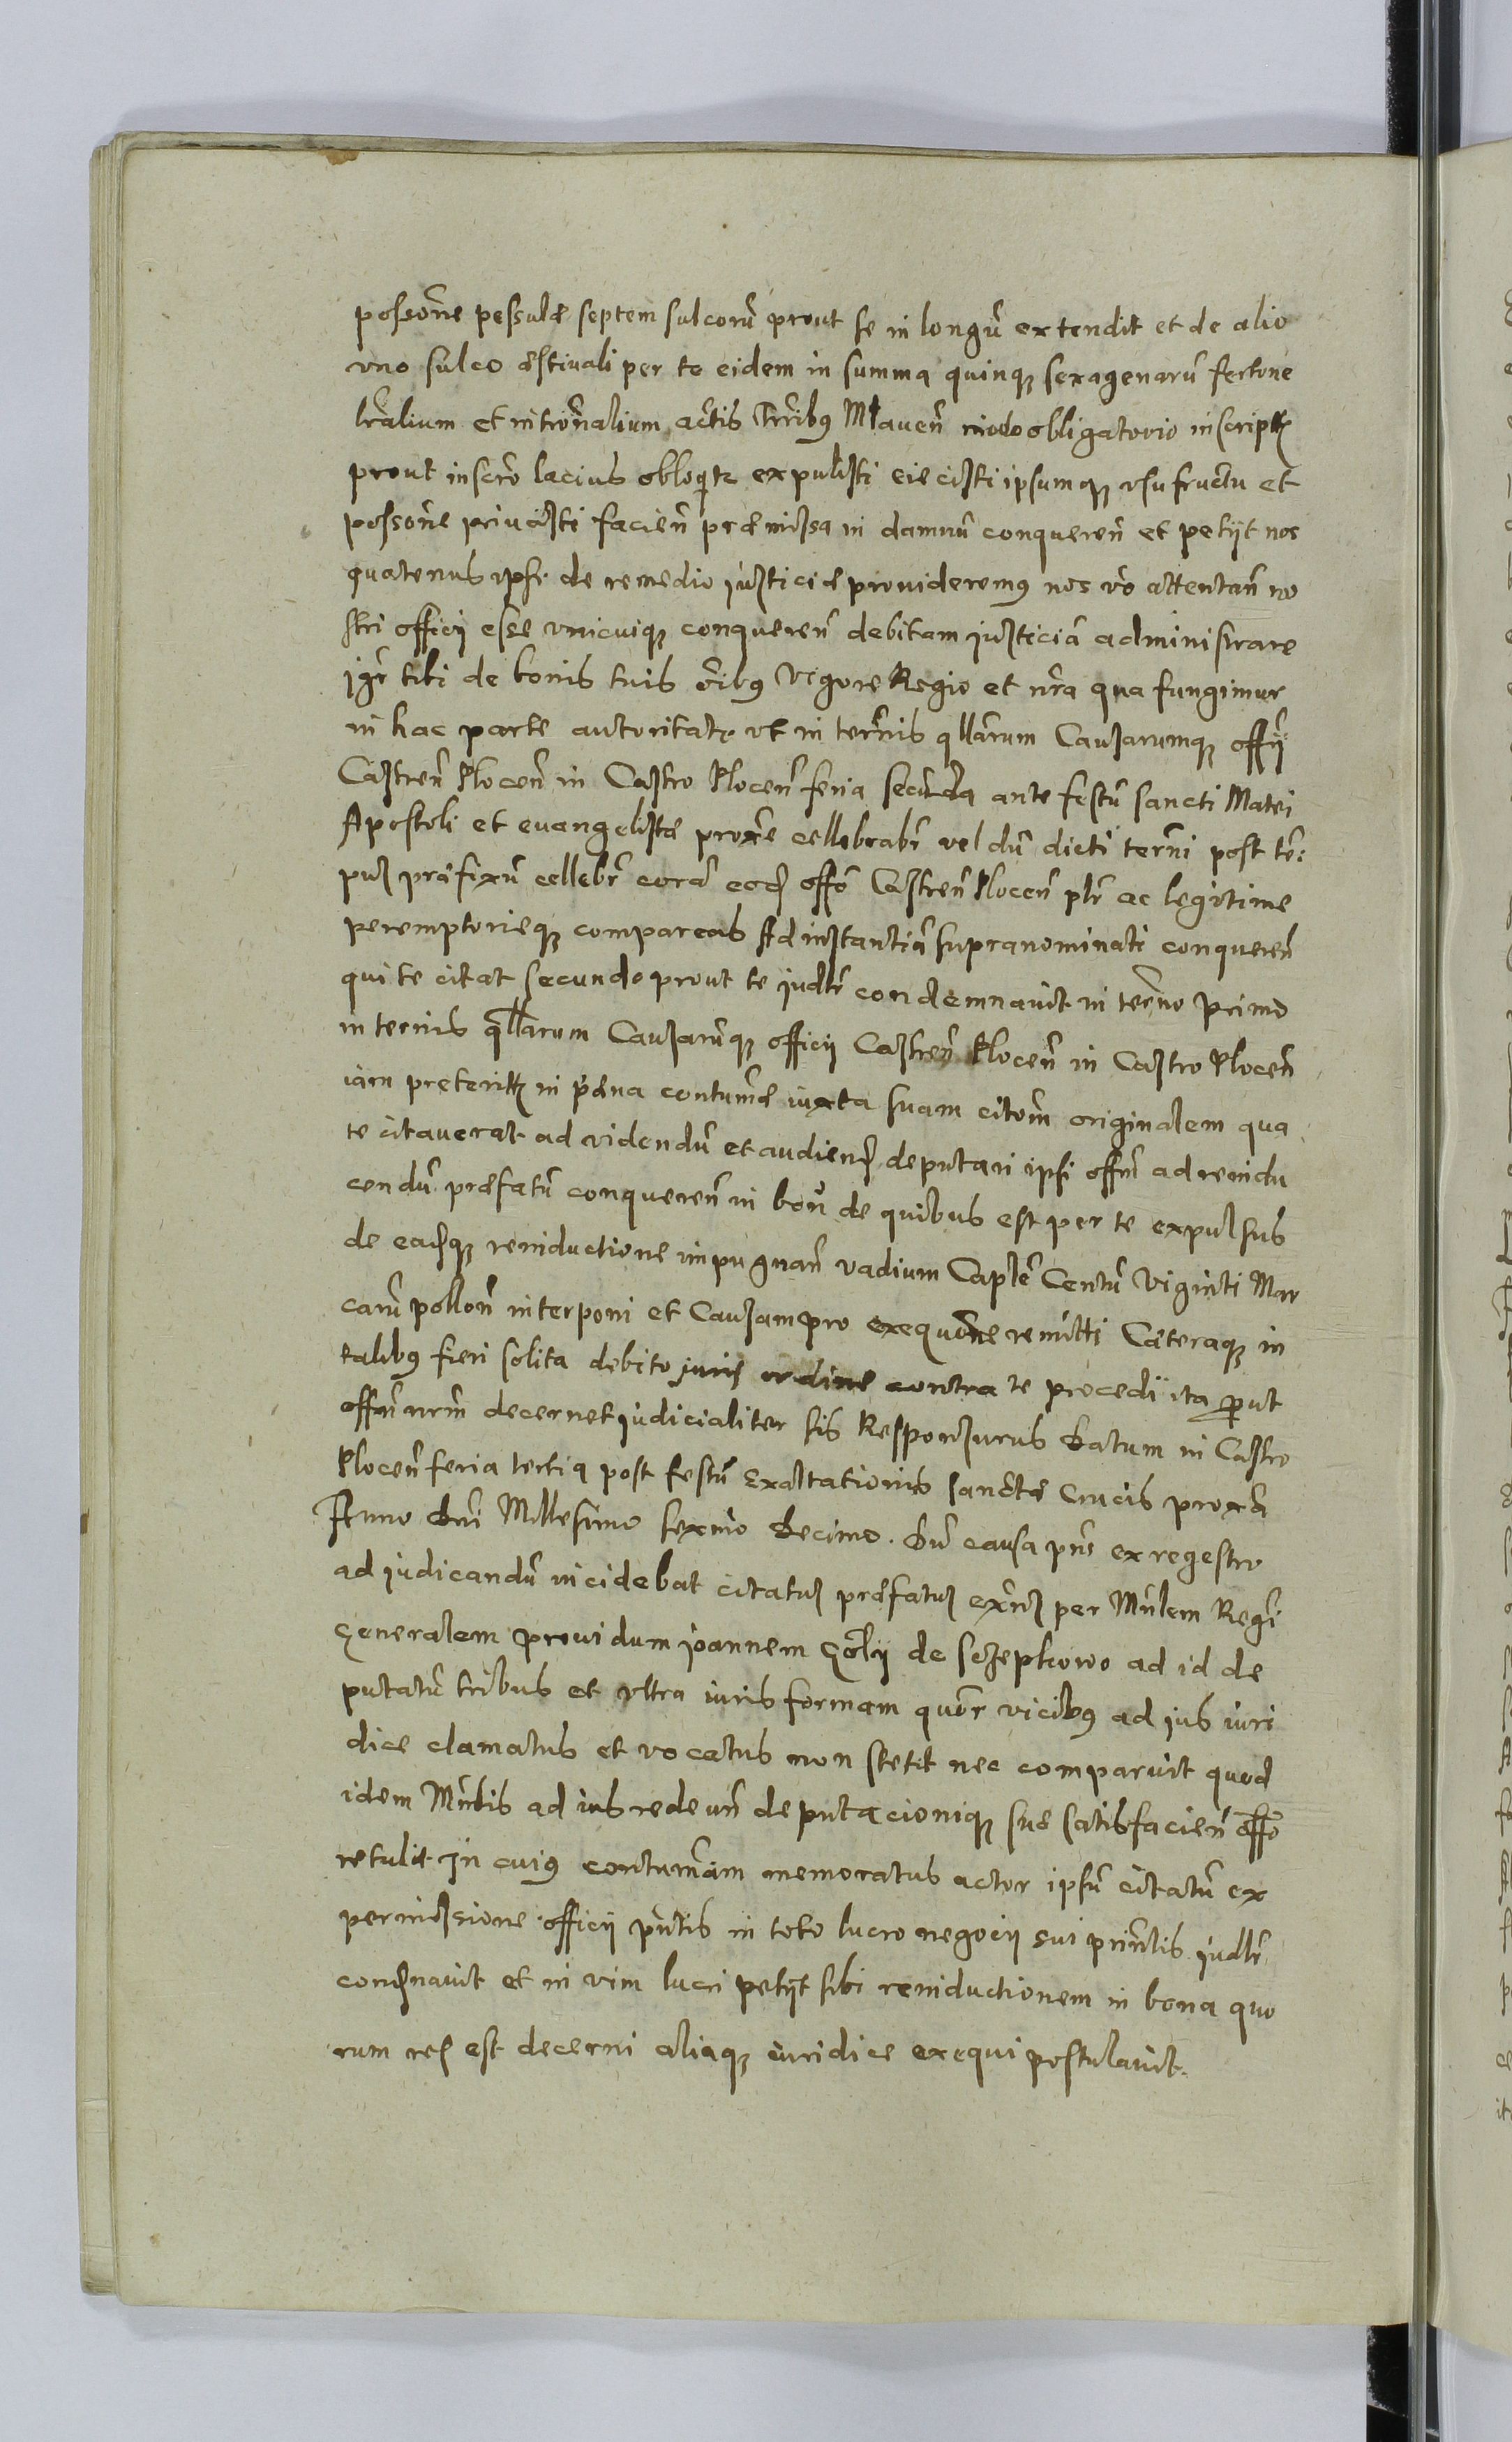 possone pessulæ septem sulcorū prout se in longū extendit et de alio
vno sulco æstiuali per te eidem in summa quinqz sexagenarū fertone
lralium et introñalium actis Trribus Mlaueñ modo obligatorio inscriptꝭ
prout inscro lacius obloqitr expulisti eiecisti ipsumqz vsufructu et
possone priuasti facieñ præmissa in damnū conquereñ et petijt nos
quatenus ipsi de remedio iusticiæ prouideremus nos vō attentañ no
stri officij esse vnicuiqz conquereñ debitam iusticiā administrare
jgr tibi de bonis tuis oībus Vigore Regio et nrā qua fungimur
in hac parte autoritate vt in termīs qllarum Causarumqz offij
Castreñ Ploceñ in Castro Ploceñ feria secunda ante festū sancti Matei
Apostoli et euangelistæ proxē cellebrabr vel dū dicti termī post tē:
pus præfixū cellebr corā eodꝭ offō Castreñ Ploceñ plr ac legitime
peremptorieqz compareas Ad instantiā supranominati conquereñ
qui te citat secundo prout te judlr condemnauit in termo primo
in termīs qllarum Causarūqz officij Castreñ Ploceñ in Castro Ploceñ
iam preteritꝭ in pœna contumæ iuxta suam citom originalem qua
te citauerat ad videndū et audiendꝭ deputari ipsi offm ad reindu
cendū præfatū conquereñ in boñ de quibus est per te expulsus
de eadꝭqz reinductione impugnañ vadium Caplē Centū Viginti Mar
carū polloñ interponi et Causam pro exequōne remitti Cæteraqz in
talibus fieri solita debito juris ordine contra te procedi ita prout
offm nrm decernet judicialiter sis Responsurus Datum in Castro
Ploceñ feria tertia post festū Exaltationis sanctæ Crucis proxā
Anno Dni Millesimo sexmo Decimo. Dū causa pns ex regestro
ad judicandū incidebat citatus præfatus exns per Mnlem Regī
Generalem prouidum joannem Goły de Szczepkowo ad id de
putatū tribus et vltra iuris formam quor vicibus ad jus iuri
dice clamatus et vocatus non stetit nec comparuit quod
idem Mnlis ad ius redeuñ deputacioniqz suæ satisfacieñ offō
retulit In cuius contumām memoratus actor ipsū citatū ex
permissione officij pntis in toto lucro negocij sui prīnlis judlr
condꝭnauit et in vim lucri petijt sibi reinductionem in bona quo
rum res est decerni aliaqz iuridice exequi postulauit.